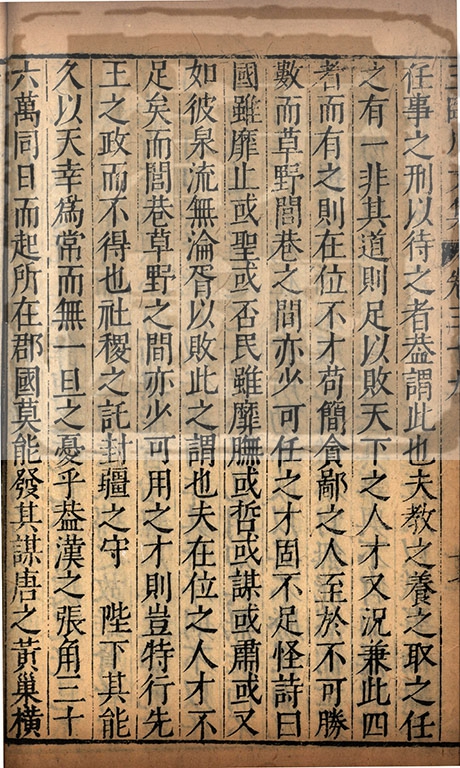 任事之刑以待之者葢謂此也夫教之養之取之任
之有一非其道則足以敗天下之人才又況兼此四
者而有之則在位不才苟簡貪鄙之人至於不可勝
數而草野閭巷之間亦少可任之才固不足怪詩曰
國雖靡止或聖或否民雖靡膴或哲或謀或肅或乂
如彼泉流無淪胥以敗此之謂也夫在位之人才不
足矣而閭巷草野之間亦少可用之才則豈特行先
王之政而不得也社稷之託封疆之守　陛下其能
久以天幸爲常而無一旦之憂乎葢漢之張角三十
六萬同日而起所在郡國莫能發其謀唐之黃巢橫